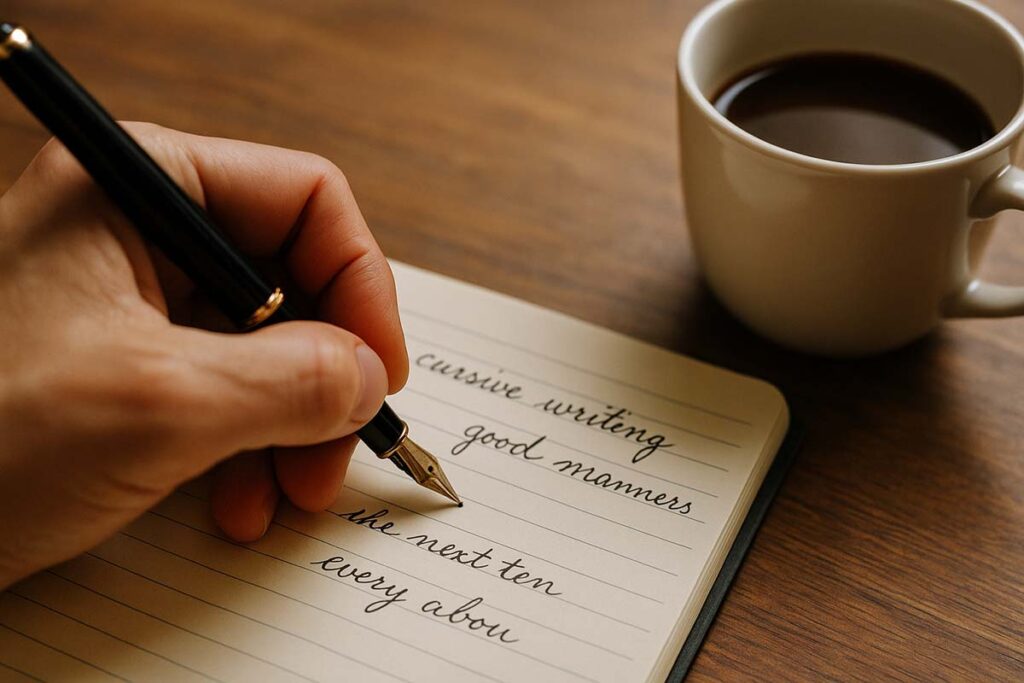 cursive writing
good manners
the next ten
every abou